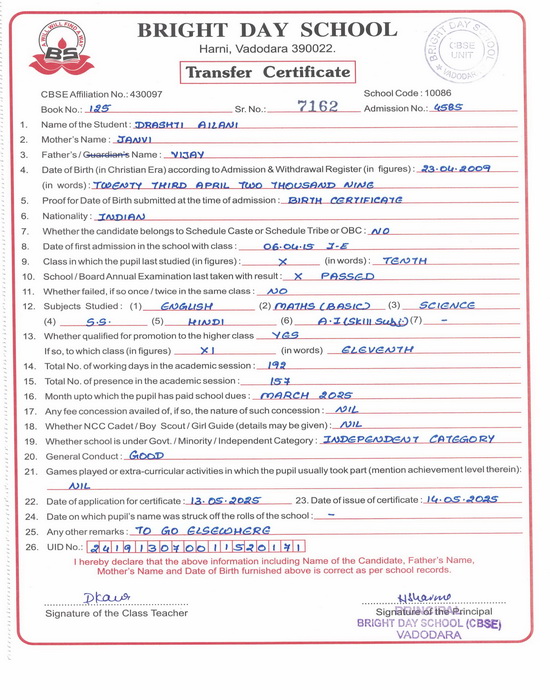 A WILL WILL FIND A WAY
BS
BRIGHT DAY SCHOOL
Harni, Vadodara 390022.
BRIGHT DAY SCHOOL
CBSE
UNIT
VADODARA
Transfer Certificate
CBSE Affiliation No.: 430097 School Code : 10086
Book No.: 125 Sr. No.: 7162 Admission No.: 4585
1. Name of the Student : DRASHTI AILANI
2. Mother's Name : JANVI
3. Father's / Guardian's Name : VIJAY
4. Date of Birth (in Christian Era) according to Admission & Withdrawal Register (in figures) : 23-04-2009
(in words) : TWENTY THIRD APRIL TWO THOUSAND NINE
5. Proof for Date of Birth submitted at the time of admission : BIRTH CERTIFICATE
6. Nationality : INDIAN
7. Whether the candidate belongs to Schedule Caste or Schedule Tribe or OBC : NO
8. Date of first admission in the school with class : 06.04.15 I-E
9. Class in which the pupil last studied (in figures) : X (in words) : TENTH
10. School / Board Annual Examination last taken with result : X PASSED
11. Whether failed, if so once / twice in the same class : NO
12. Subjects Studied : (1) ENGLISH (2) MATHS (BASIC) (3) SCIENCE
(4) S.S. (5) HINDI (6) A.I (Skill Subj.) (7) -
13. Whether qualified for promotion to the higher class YES
If so, to which class (in figures) XI (in words) ELEVENTH
14. Total No. of working days in the academic session : 192
15. Total No. of presence in the academic session : 157
16. Month upto which the pupil has paid school dues : MARCH 2025
17. Any fee concession availed of, if so, the nature of such concession : NIL
18. Whether NCC Cadet / Boy Scout / Girl Guide (details may be given) : NIL
19. Whether school is under Govt. / Minority / Independent Category : INDEPENDENT CATEGORY
20. General Conduct : GOOD
21. Games played or extra-curricular activities in which the pupil usually took part (mention achievement level therein) :
NIL
22. Date of application for certificate : 13.05.2025 23. Date of issue of certificate : 14.05.2025
24. Date on which pupil's name was struck off the rolls of the school : -
25. Any other remarks : TO GO ELSEWHERE
26. UID No.: 241913070011520171
I hereby declare that the above information including Name of the Candidate, Father's Name,
Mother's Name and Date of Birth furnished above is correct as per school records.
Signature of the Class Teacher Signature of the Principal
PRINCIPAL
BRIGHT DAY SCHOOL (CBSE)
VADODARA